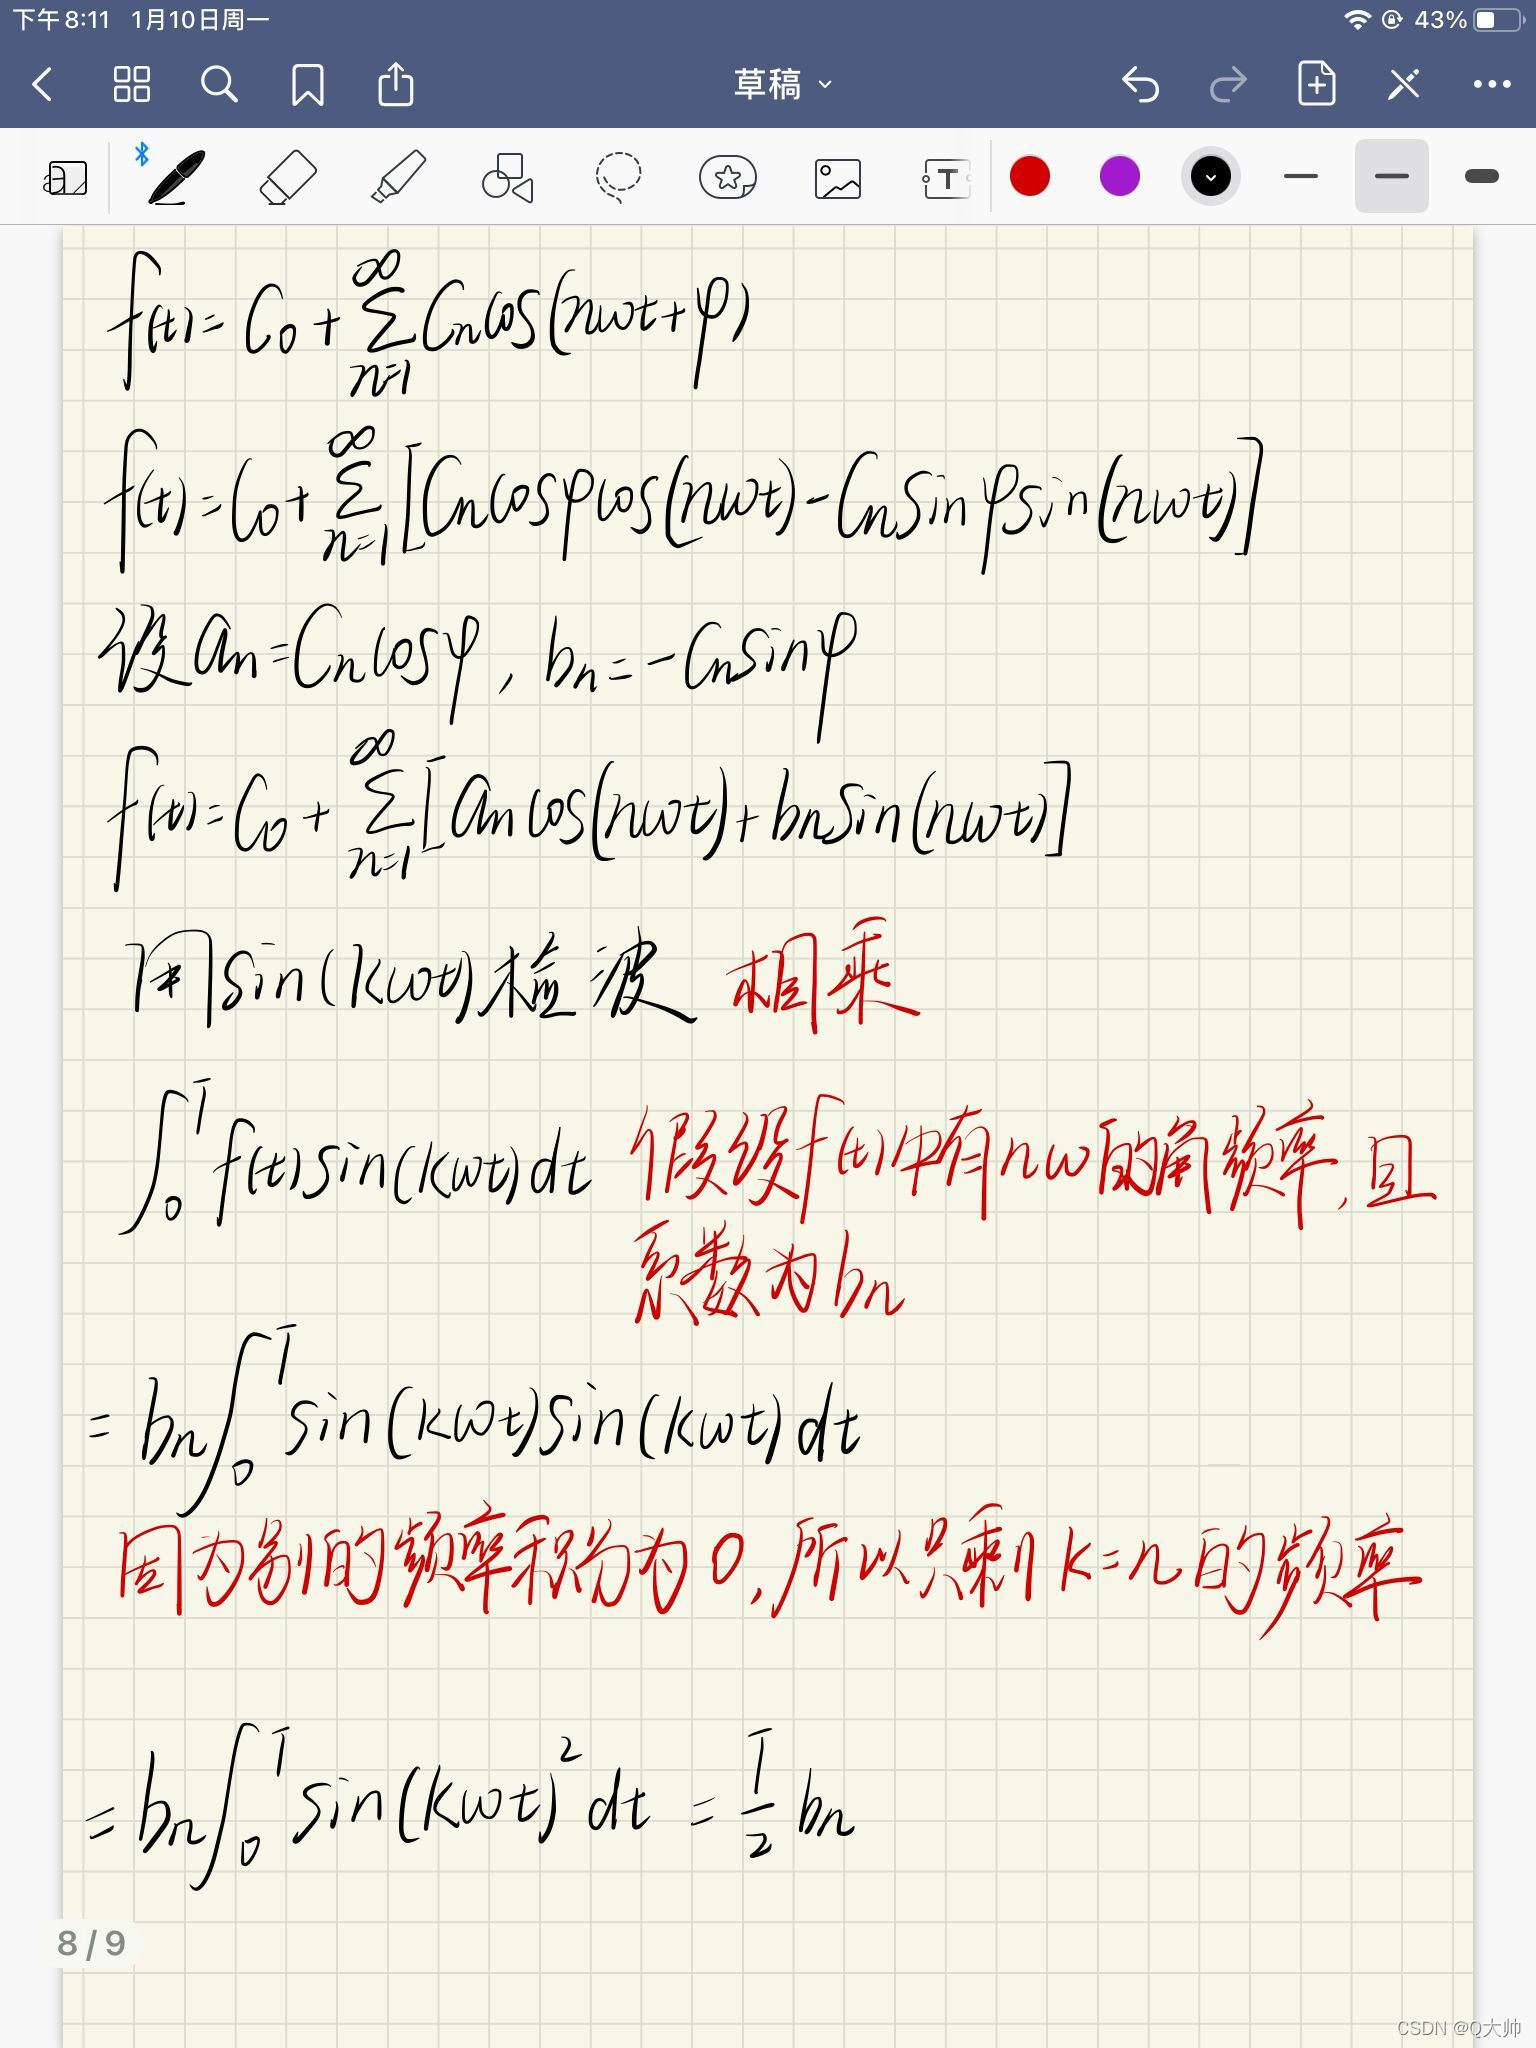 下午8:11 1月10日周一 43%
草稿
f(t)=C₀+∑_{n=1}^{∞}Cₙcos(nωt+φ)
f(t)=C₀+∑_{n=1}^{∞}[Cₙcosφcos(nωt)-Cₙsinφsin(nωt)]
设aₙ=Cₙcosφ, bₙ=-Cₙsinφ
f(t)=C₀+∑_{n=1}^{∞}[aₙcos(nωt)+bₙsin(nωt)]
用sin(kωt)检波 相乘
∫₀ᵀf(t)sin(kωt)dt 假设f(t)中有nω的角频率,且
系数为bₙ
=bₙ∫₀ᵀsin(kωt)sin(kωt)dt
因为别的频率积分为0,所以只剩k=n的频率
=bₙ∫₀ᵀsin(kωt)²dt=T/2 bₙ
8/9
CSDN @Q大帅